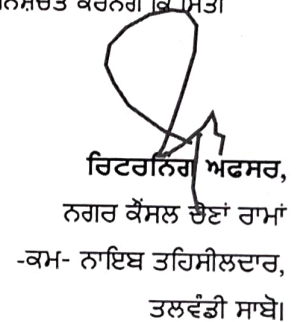 ਕਰਨਗੇ ਕਿ ਮਿਤੀ
ਰਿਟਰਨਿੰਗ ਅਫਸਰ,
ਨਗਰ ਕੌਂਸਲ ਚੋਣਾਂ ਰਾਮਾਂ
-ਕਮ- ਨਾਇਬ ਤਹਿਸੀਲਦਾਰ,
ਤਲਵੰਡੀ ਸਾਬੋ।